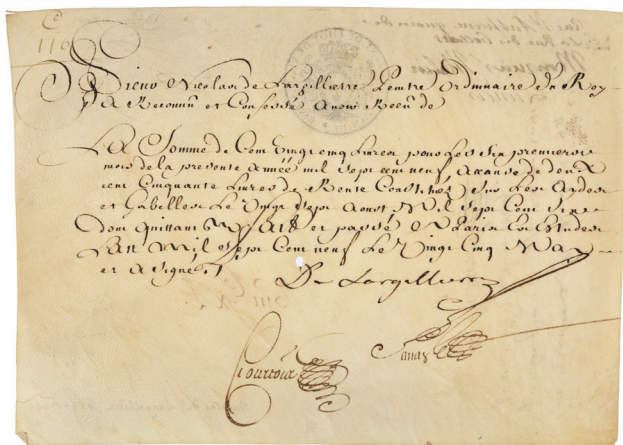 C
119
Sieur Nicolas de Largillierre Peintre Ordinaire du Roy
A Reconnu et Confessé Avoir Receu de
La Somme de Cent Vingt cinq Livres pour les six premiers
mois de la presente Année mil sept cent neuf A cause de deux
cent Cinquante Livres de Rente Constituez sur les Aydes
et Gabelles Le Vingt sept Aoust Mil sept Cent
dont quittant et passé A Paris Es Estudes
L'an Mil sept Cent neuf Le Vingt Cinq May
et A signé
De Largillierre
Courtois